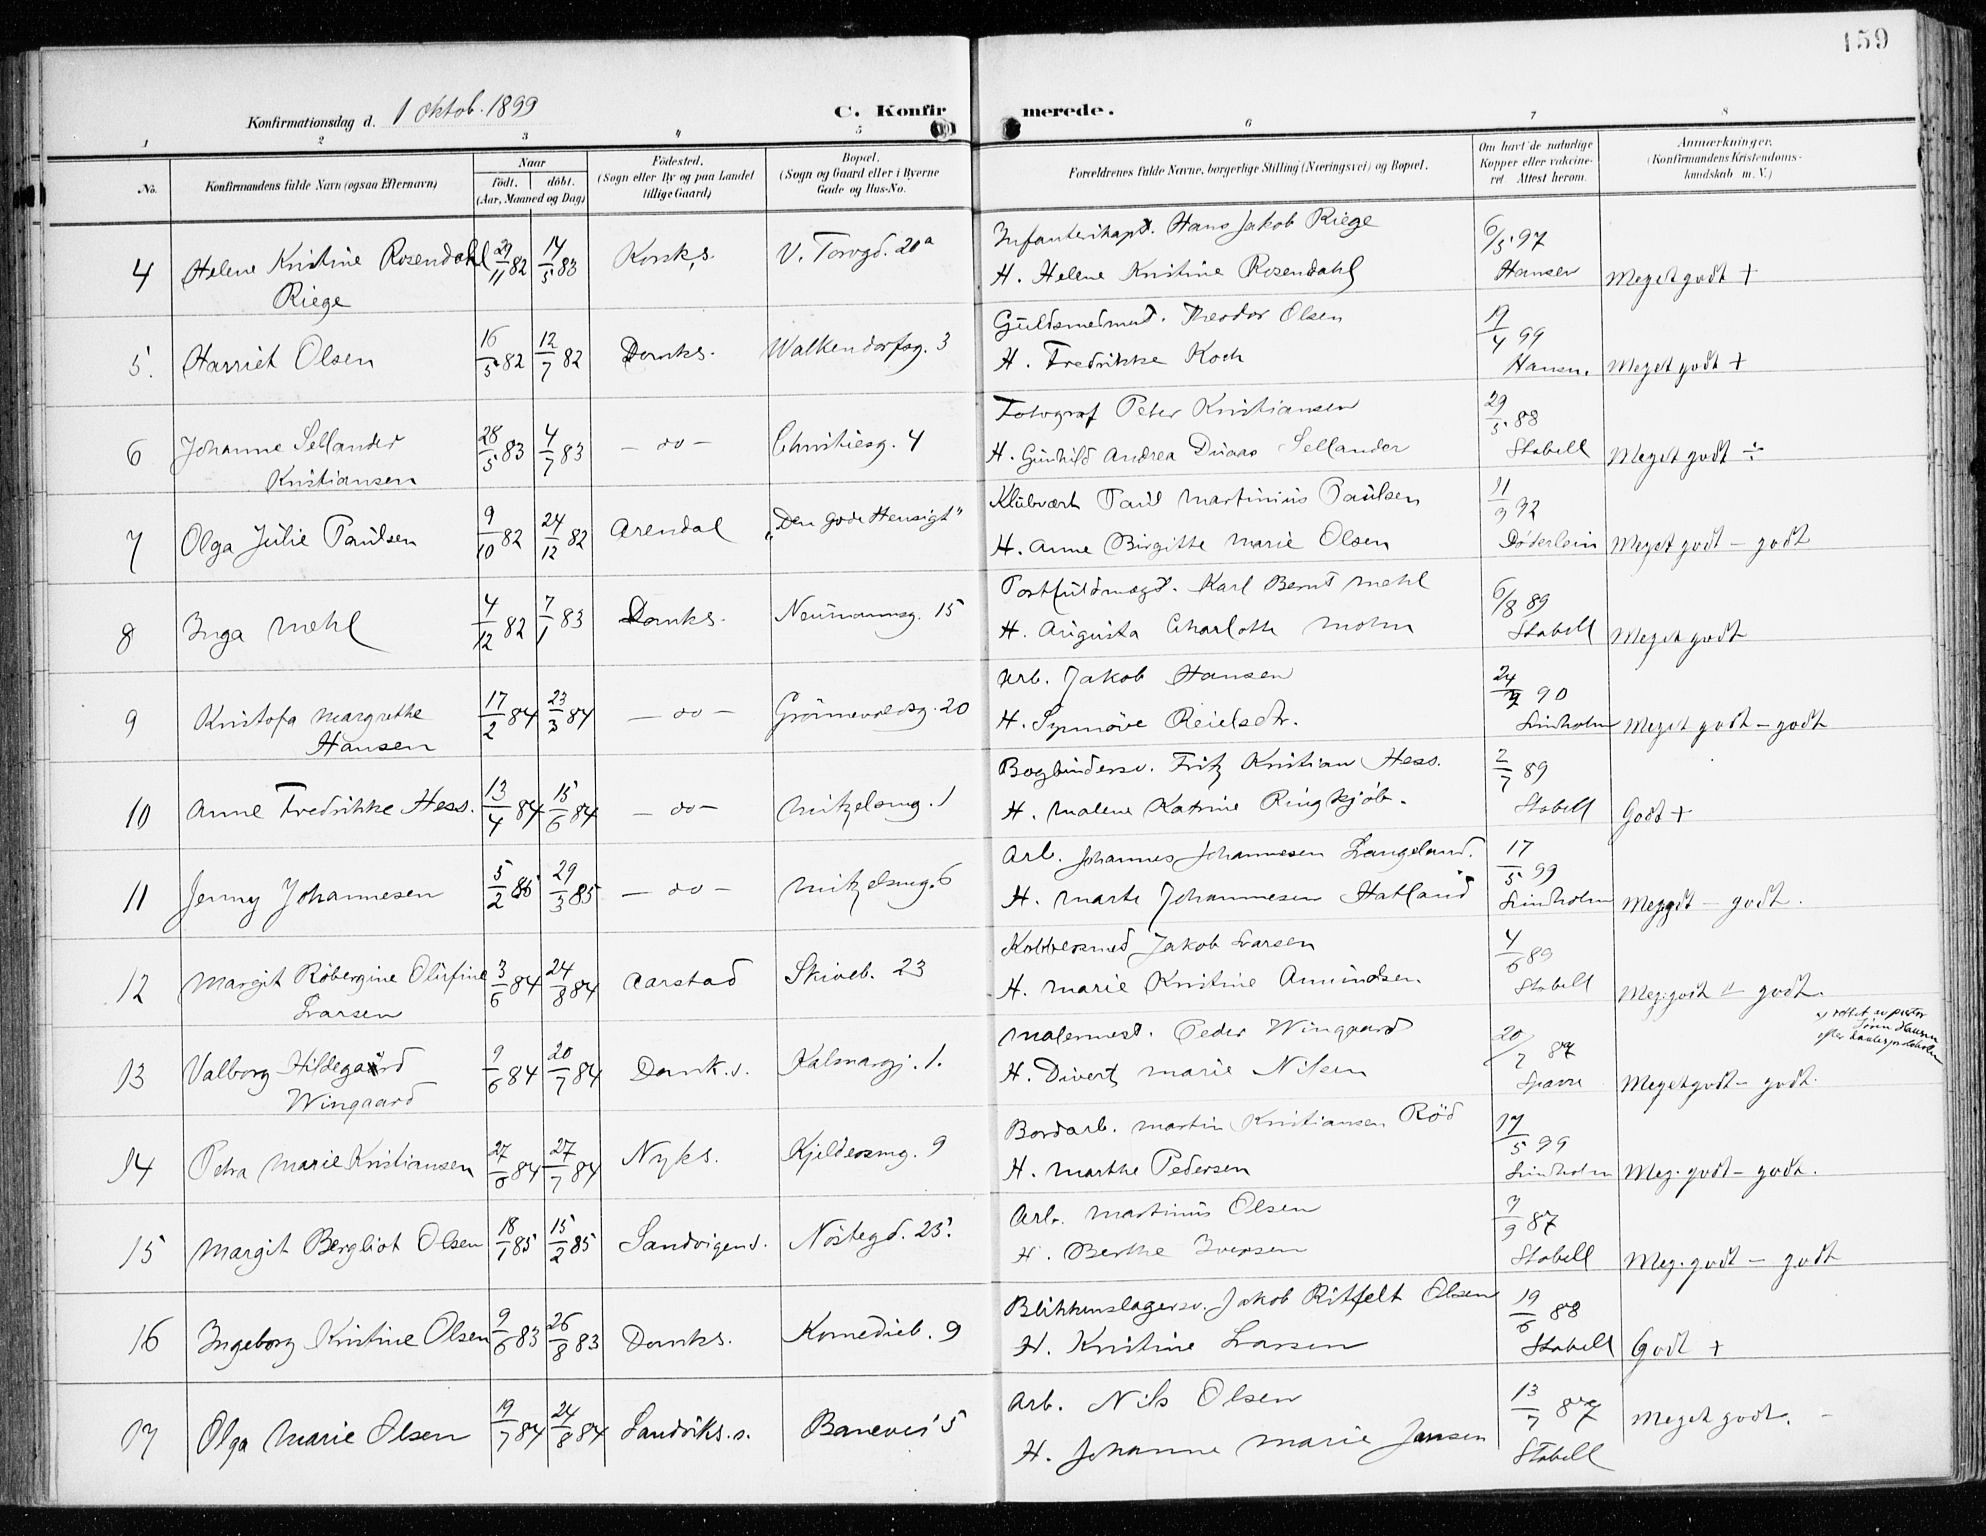 159
Konfirmationsdag d. 1 Oktob. 1899
C. Konfirmerede.
1 2 3 4 5 6 7 8
No. Konfirmandens fulde Navn (ogsaa Efternavn) Naar født. døbt. (Aar, Maaned og Dag) Fødested. (Sogn eller By og paa Landet tillige Gaard) Bopæl. (Sogn og Gaard eller i Byerne Gade og Hus-No. Forældrenes fulde Navne, borgerlige Stilling (Næringsvei) og Bopæl. Om havt de naturlige Kopper eller vakcineret. Attest herom. Anmærkninger. (Konfirmandens Kristendomskundskab m. V.)
4 Helene Kristine Rosendahl 29/11 82 14/5 83 Korsk,s. V. Torvgd. 20a Infanterikapt. Hans Jakob Riege 6/5 97
Riege H. Helene Kristine Rosendahl Hansen Meget godt +
5. Harriet Olsen 16/5 82 12/7 82 Domks. Walkendorfsg. 3 Guldsmedmest. Theodor Olsen 19/4 99
H. Fredrikke Koch Hansen. Meget godt +
6 Johanne Sellander 28/5 83 4/7 83 - do - Christiesg. 4 Fotograf Peter Kristiansen 29/5 88
Kristiansen H. Gunhild Andrea Duaas Sellander Stabell Meget godt ÷
7 Olga Julie Paulsen 9/10 82 24/12 82 Arendal "Den gode Hensigt" Klubvært Paul Martinius Paulsen 11/3 92
H. Anne Birgitte Marie Olsen Døderlein Meget godt - godt
8 Inga Mehl 4/12 82 7/1 83 Domks. Neumannsg. 15 Postfuldmægt. Karl Bernt Mehl 6/8 89
H. Augusta Charlotte Mohn Stabell Meget godt
9 Kristofa Margrethe 17/2 84 23/3 84 - do - Grønnevoldsg. 20 Arb. Jakob Hansen 90
Hansen H. Synnøve Reielsdtr. Lindholm Meget godt - godt
10 Anne Fredrikke Hess. 13/4 84 15/6 84 - do - Nutzelsmg. 1 Bogbindersv. Fritz Kristian Hess. 2/7 89
H. Malene Katrine Ringkjøb. Stabell Godt +
11 Jenny Johannesen 5/2 85 29/3 85 - do - Nutzelsmg. 6 Arb. Johannes Johannesen Langeland. 17/5 99
H. Marte Johannesen Hatland Lindholm Meg. godt - godt.
12 Margit Robergine Olufine 3/6 84 24/8 84 Aarstad Skiveb. 23 Kobbersmed Jakob Larsen 4/6 89
Larsen H. Marie Kristine Amundsen Stabell Meg. godt - godt.
x) rettet av pastor
Søren Hansen
efter
13 Valborg Hildegard 9/6 84 20/7 84 Domk.s. Kalmargj. 1. Malermest. Peder Wingaard
Wingaard H. Divert Marie Nilsen Meget godt - godt.
14 Petra Marie Kristiansen 27/6 84 27/7 84 Nyks. Kjeldersmg. 9 Bordarb. Martin Kristiansen Rød 19/5 99
H. Marthe Pedersen Lindholm Meg. godt - godt.
15 Margit Bergliot Olsen 18/1 85 15/2 85 Sandvigens. Nøstegd. 25. Arb. Martinus Olsen 7/9 87
H. Berthe Iversen Stabell Meg. godt - godt
16 Ingeborg Kristine Olsen 9/6 83 26/8 83 Domks. Komedieb. 9 Blikkenslagersv. Jakob Ritfelt Olsen 19/6 88
H. Kristine Larsen Stabell Godt +
17 Olga Marie Olsen 19/7 84 24/8 84 Sandviks.s. Banevei 5 Arb. Nils Olsen 13/7 87
H. Johanne Marie Jansen Stabell Meget godt. -